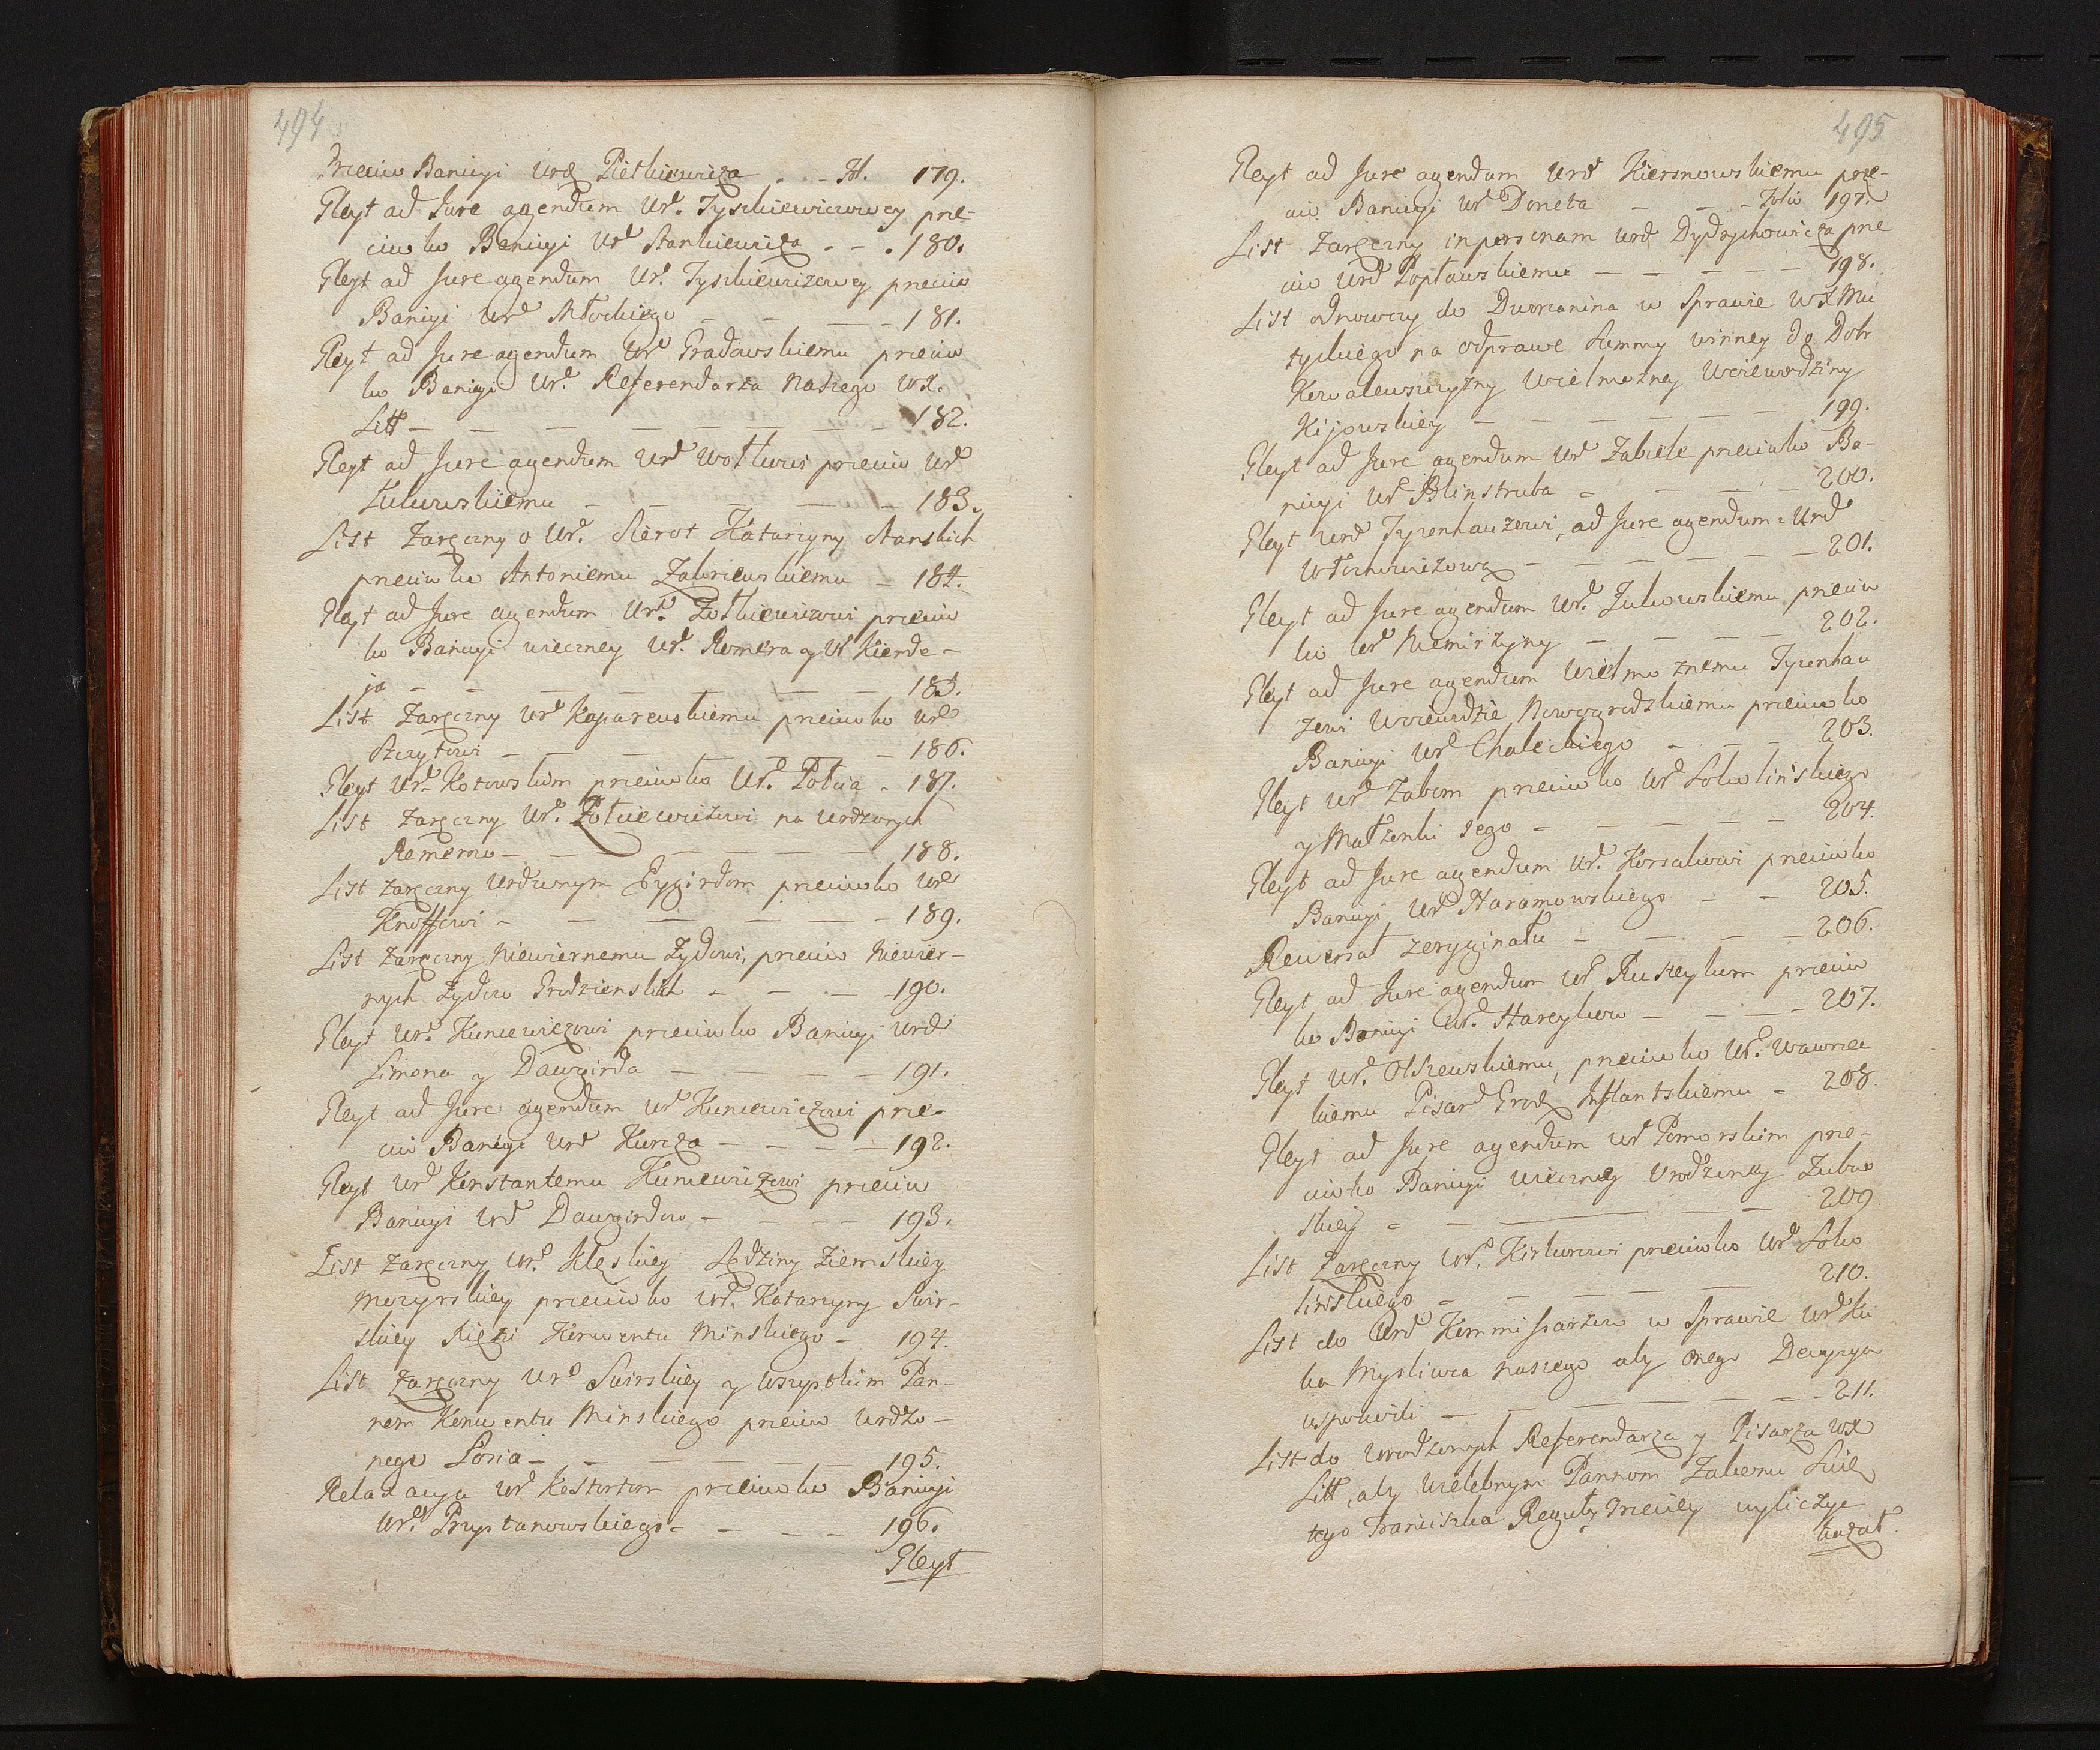 494
Przeciw Banicyi Urd Pietkiewicza . . - fol. 179.
Gleyt ad Jure agendum Ur. Tyszkiewiczowey prze-
ciwko Banicyi Urd Stankiewicza . - . 180.
Gleyt ad Jure agendum Ur. Tyszkiewizowey przeciw
Banicyi Urd Młockiego - - - - 181.
Gleyt ad Jure agendum Urd Gradowskiemu przeciw
ko Banicyi Urd Referendarza Naszego WX.
Litt - - - - - - - 182.
Gleyt ad Jure agendum Urd Wołkowi przeciw Urd
Łukowskiemu - - - - - 183.
List Zaręczny o Ur. Sierot Katarzyny Stanskich
przeciwko Antoniemu Zakrzewskiemu - 184.
Gleyt ad Jure agendum Urd Zołkiewizowi przeciw
ko Banicyi wieczney Urd Romera y Ur Kierde-
ja - - - - - - - 185.
List Zaręczny Urd Kaparewskiemu przeciwko Urd
Szczytowi - - - - - - 186.
Gleyt Urd Kotowskim przeciwko Urd Połcia - 187.
List Zaręczny Urd Połciewiżowi na Urdzonych
Remerow - - - - - - 188.
List Zaręczny Urdzwnym Eygirdom przeciwko Urd
Knoffowi - - - - - - 189.
List Zaręczny Niewiernemu Żydowi, przeciw Niewier-
nych Żydow Grodzienskich - - - 190.
Gleyt Urd Kuncewiczowi przeciwko Banicyi Urd
Simona y Dawgirda - - - - 191.
Gleyt ad Jure agendum Urd Kuncewiczowi prze-
ciw Banicyi Urd Kurcza - - - - 192.
Gleyt Urd Konstantemu Kuncewiżowi przeciw
Banicyi Urd Dawgirdow - - - - 193.
List Zaręczny Urd Kłęskiey Sędziny Ziemskiey
Mozyrskiey przeciwko Urd Katarzyny Swir-
skiey Xięni Konwentu Minskiego - 194.
List Zaręczny Urd Swirskiey y Wszystkim Pan-
nom Konwentu Minskiego przeciw Urdzo-
nego Łosia - - - - - - 195.
Relaxacya Urd Kestortom przeciwko Banicyi
Urd Przystanowskiego - - - - 196.
Gleyt
495
Gleyt ad Jure agendum Urd Kiersnowskiemu prze-
ciw Banicyi Urd Doneta - - - folio 197.
List Zaręczny inpersonam Urd Dydzychowicza prze
ciw Urd Popławskiemu - - - - - 198.
List odnowczy do Dworzanina w Sprawie WX Mu
życkiego na odprawę Summy winney do Dobr
Kowalewszczyzny Wielmożney Woiewodziny
Kijowskiey - - - - - 199.
Gleyt ad Jure agendum Urd Zabiele przeciwko Ba-
nicyi Urd Blinstruba - - - - 200.
Gleyt Urd Tyzenhauzowi, ad Jure agendum Urd
Włochowiżową - - - - - 201.
Gleyt ad Jure agendum Urd Żukowskiemu przeciw
ko Urd Niemirżyny - - - - 202.
Gleyt ad Jure agendum Wielmożnemu Tyzenhau
zowi Woiewodzie Nowogrodzkiemu przeciwko
Banicyi Urd Chaleckiego - - - 203.
Gleyt Urd Zabom przeciwko Urd Sokolińskiego
y Małżonki Jego - - - - - 204.
Gleyt ad Jure agendum Urd Korsakowi przeciwko
Banicyi Urd Haramowskiego - - 205.
Rewersał zeryginału - - - - 206.
Gleyt ad Jure agendum Urd Ruszeykom przeciw
ko Banicyi Urd Hareykow - - - - 207.
Gleyt Urd Olszewskiemu, przeciwko Urd Wawrzec
kiemu Pisard Grodz Inflantskiemu - 208.
Gleyt ad Jure agendum Urd Pomorskim prze-
ciwko Banicyi wieczney Urodzoney Zubow
skiey - - - - - 209
List Zaręczny Urd Kirkorowi przeciwko Urd Soko
linskiego - - - - - 210.
List do Urd Kommissarżow w Sprawie Urd Ku
ka Mysliwca Naszego aby onego Decyzya
uspokoili - - - - - - 211.
List do Urodzonych Referendarza y Pisarza WX
Litt, aby Wielebnym Pannom Zakonu Swię
tego Franciszka Reguły Trzeciey wyliczyc
kazał